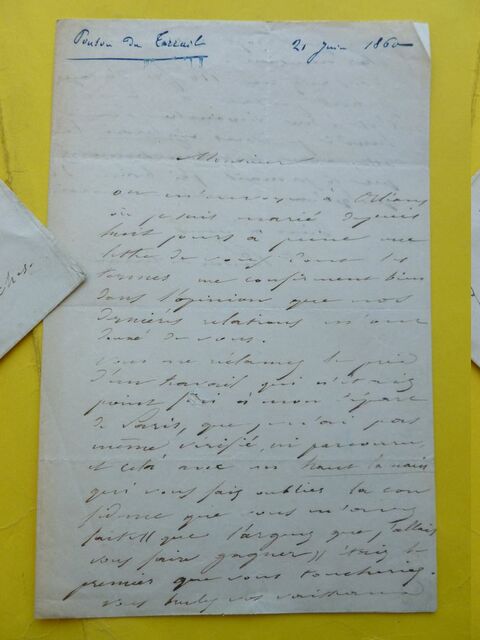 Ponson du Terrail 21 Juin 1860
Monsieur
on m'envoye à Orléans
où je suis marié depuis
huit jours à peine une
lettre de vous dont les
termes me confirment bien
dans l'opinion que nos
dernières relations m'ont
donné de vous.
vous me réclamez le prix
d'un travail qui n'était
point fini à mon départ
de Paris, que je n'ai pas
même vérifié, ni parcouru
et cela avec un
qui vous fait oublier la con
fidence que vous m'avez
faite que l'argent que j'allais
vous faire gagner était le
premier que vous toucheriez.
vous